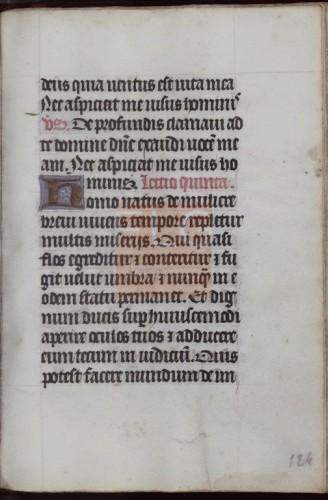 deus quia ventus est vita mea
Nec aspiciat me visus hominis
Vs. De profundis clamavi ad
te domine dñe exaudi vocē me
am. Nec aspiciat me visus ho
minis. Lectio quinta.
Homo natus de muliere
brevi vivens tempore repletur
multis miserijs. Qui quasi
flos egreditur ⁊ conteritur ⁊ fu
git velut umbra ⁊ nunq̄ in e
odem statu permanet. Et dig
num ducis sup huiuscemodi
aperire oculos tuos ⁊ adducere
eum tecum in iudiciū. Quis
potest facere mundum de im
126